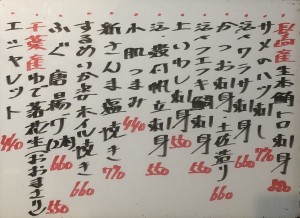 長崎産生本鮪トロ刺身
サメのハツ刺し 770
活〆ワラサ刺身
かつお刺身・土佐造り 660
活〆フエフキ鯛刺身
上いわし刺身 550
活〆帆立刺身 550
水茄子刺身 440
新さんま塩焼き 770
するめいか丸ホイル焼き 660
ふぐ唐揚げ 660
千葉産ゆで落花生(おおまさり) 550
エシャレット 440